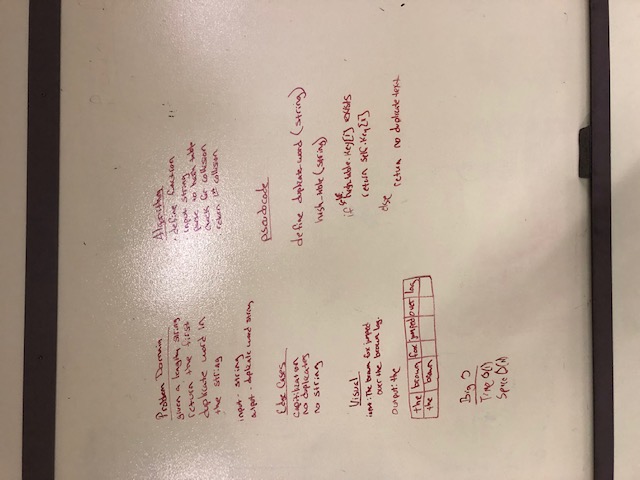 Problem Domain
given a lengthy string
return the first
duplicate word in
the string
input - string
output - duplicate word string
Edge Cases
capitilization
no duplicates
no string
Visual
input: The brown fox jumped
over the brown log.
output: the
the brown fox jumped over log
the brown
Big O
Time O(1)
Space O(n)
Algorithm
define function
input string
parse to hash table
check for collision
return 1st collision
pseudocode
define duplicate_word (string)
hash_table (string)
if self.hash_table.key[i] exists
return self.key[i]
else
return no duplicate text